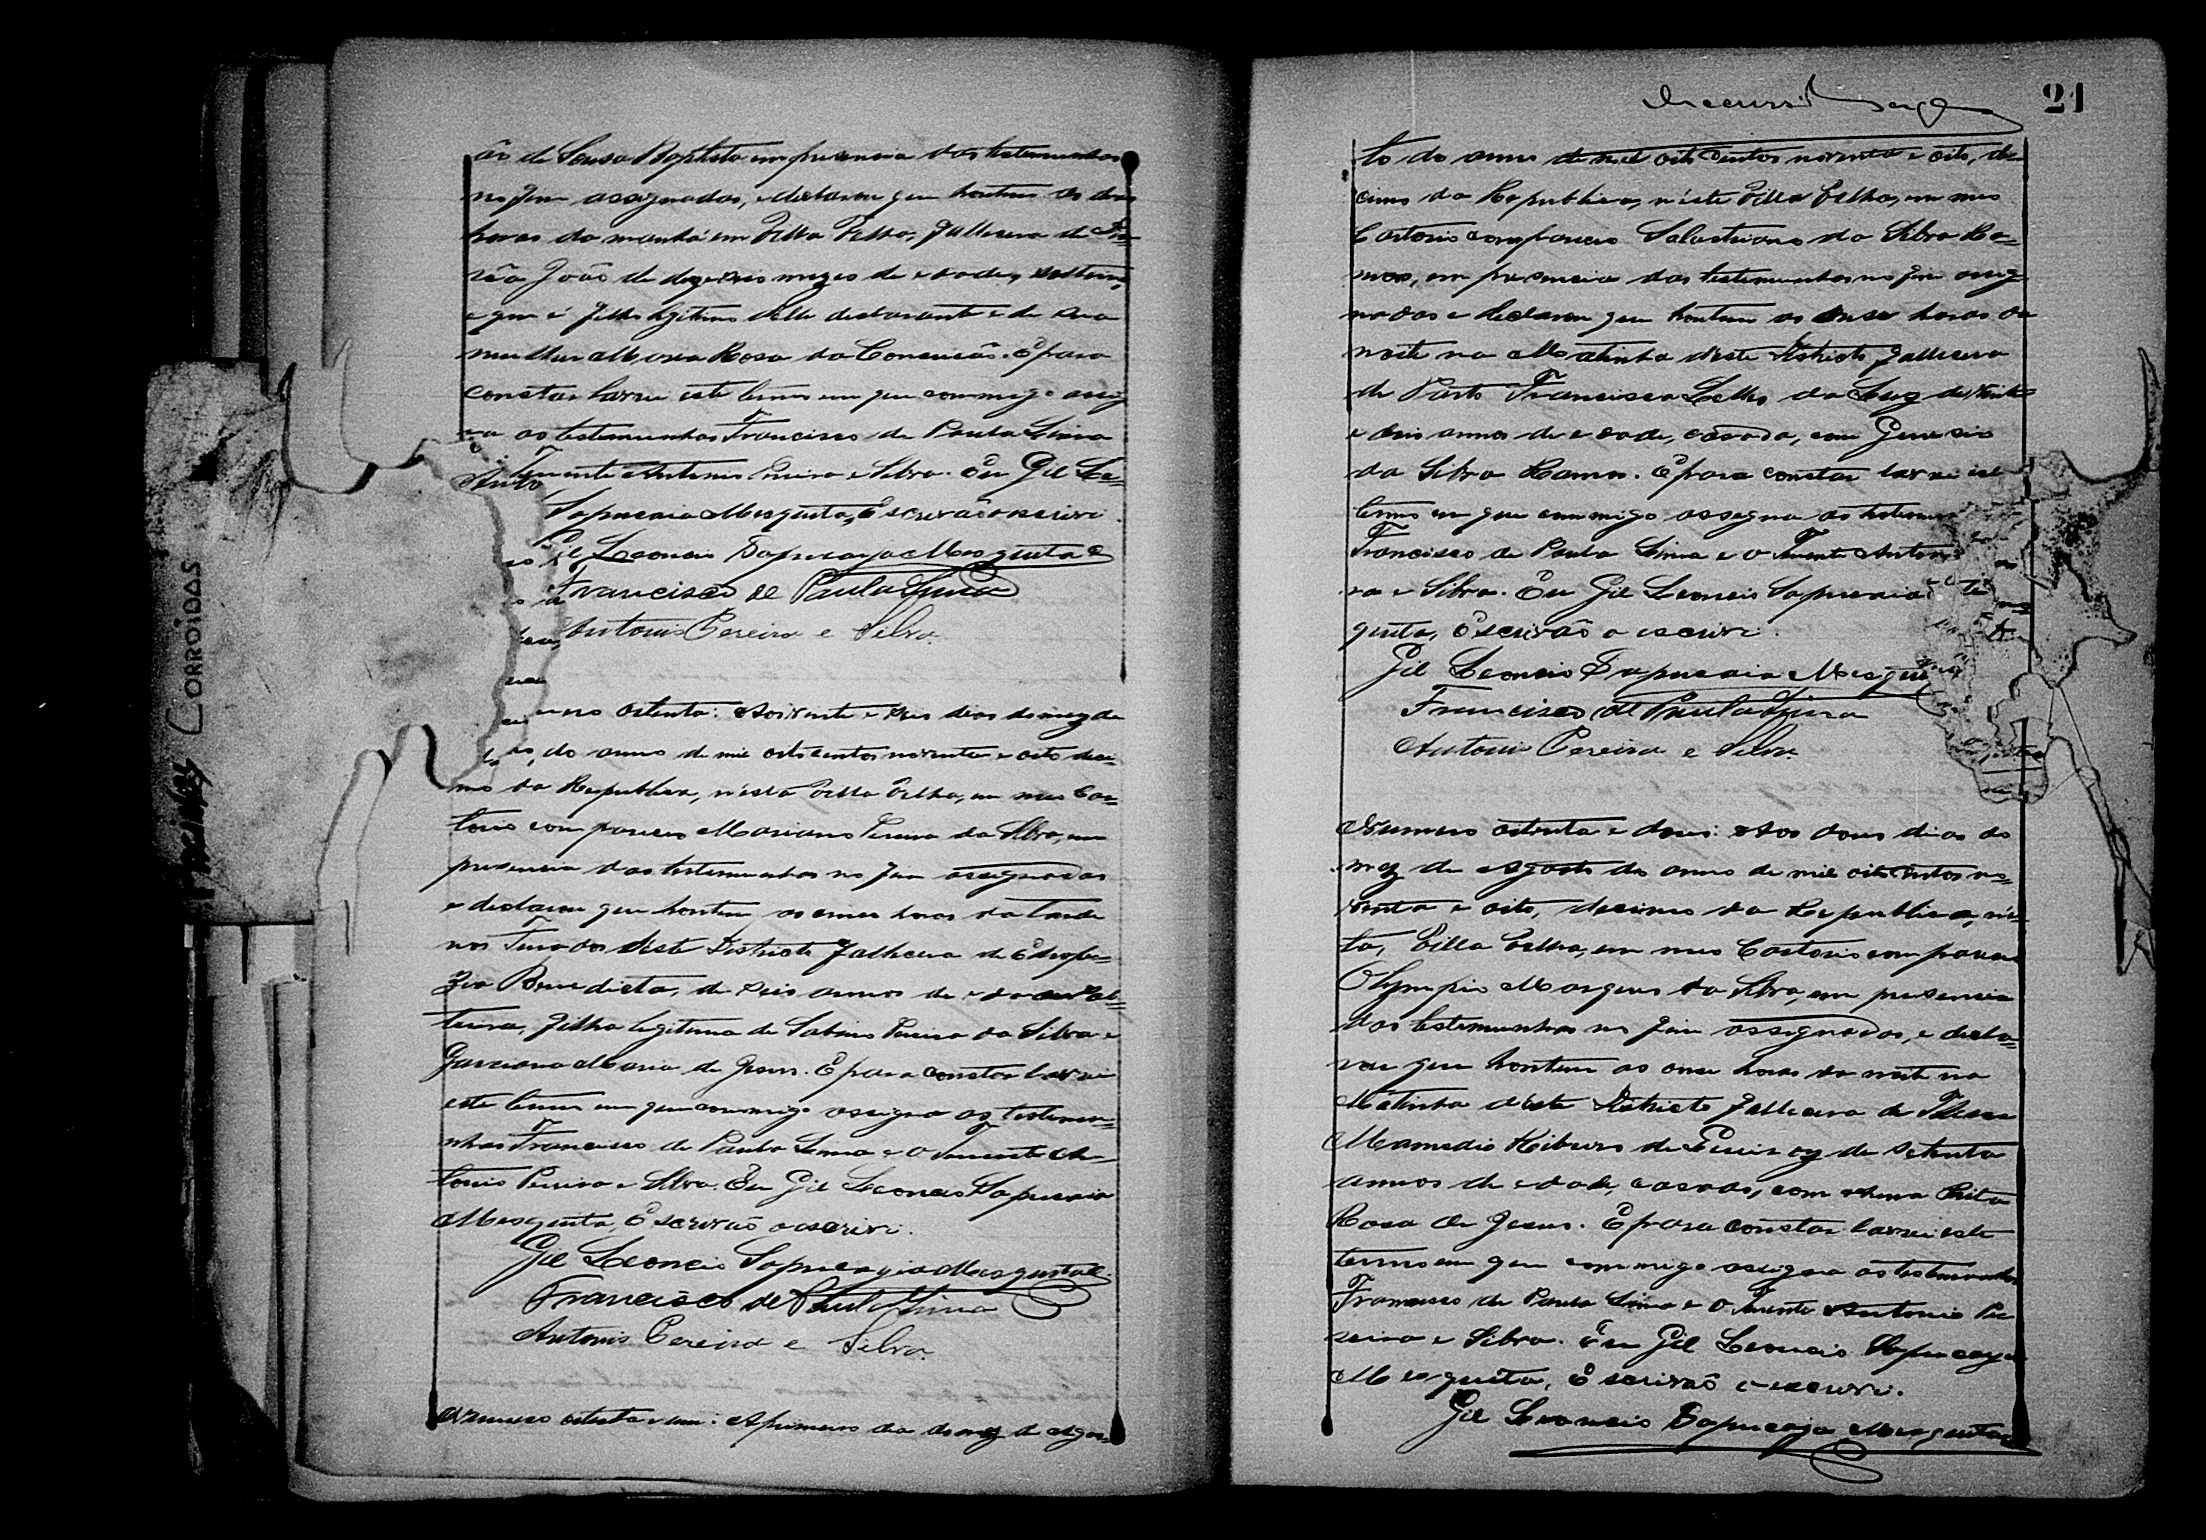 ão de Sousa Baptista em presencia das testemunhas
no fim assignadas, e declarou que hontem as duas
horas da manhã em Villa Velha, falleceu de
João de dezeseis mezes de edade, solteiro,
e que é filho legitimo delle declarante e de sua
mulher Maria Rosa da Conceicão. E para
constar lavrei este termo em que commigo assig
na as testemunhas Francisco de Paula Lima
Tenente Antonio Pereira e Silva. Eu Gil Le=
Sapucaia Mesquita, Escrivão o escrivi.
Gil Leoncio Sapucaya Mesquita
Francisco de Paula Lima
Antonio Pereira e Silva.
CORROIDAS
mero oitenta: Aos vinte e seis dias do mez de
do anno de mil oitocentos noventa e oito deci=
mo da Republica, n'esta Villa Velha, em meu Car=
torio compareceu Mariano Pereira da Silva, em
presencia das testemunhas no fim assignadas
e declarou que hontem as cinco horas da tarde
nos deste Districto falleceu de
Benedicta, de seis annos de edade sol=
teira, filha legitima de Sabino Pereira da Silva e
Maria de Jesus. E para constar lavrei
este termo em que commigo assigna as testemu=
nhas Francisco de Paula Lima e o Tenente An=
tonio Pereira e Silva. Eu Gil Leoncio Sapucaia
Mesquita, Escrivão o escrivi.
Gil Leoncio Sapucaya Mesquita
Francisco de Paula Lima
Antonio Pereira e Silva.
Numero oitenta e um: Ao primeiro dia do mez de Agos=
21
to do anno de mil oito centos noventa e oito, de
cimo da Republica, n'esta Villa Velha, em meu
Cartorio compareceu Salustiano da Silva Ra=
mos, em presencia das testemunhas no fim assig
nadas e declarou que hontem as onse horas da
noite na Matinha d'este Districto falleceu
de Parto Francisca Telles da Luz de vinte
e dois annos de edade, casada, com Genesio
da Silva Ramos. E para constar lavrei este
termo em que commigo assigna as testemu
Francisco de Paula Lima e o Tenente Antonio
ra e Silva. Eu Gil Leoncio Sapucaia
quita, Escrivão o escrivi.
Gil Leoncio Sapucaia Mesquita
Francisco de Paula Lima
Antonio Pereira e Silva.
Numero oitenta e dous: Aos dous dias do
mez de Agosto do anno de mil oito centos no=
venta e oito, decimo da Republica, n'es
ta, Villa Velha, em meu Cartorio compareceu
Olympio Marques da Silva, em presencia
das testemunhas no fim assignadas, e decla=
rou que hontem as onse horas da noite na
Matinha d'este Districto falleceu de
Mamedio Ribeiro de de setenta
annos de edade, casado, com Anna Rita
Rosa de Jesus. E para constar lavrei este
termo em que commigo assigna as testemunhas
Francisco de Paula Lima e o Tenente Antonio Pe
reira e Silva. Eu Gil Leoncio Sapucaya
Mesquita, Escrivão o escrivi.
Gil Leoncio Sapucaya Mesquita